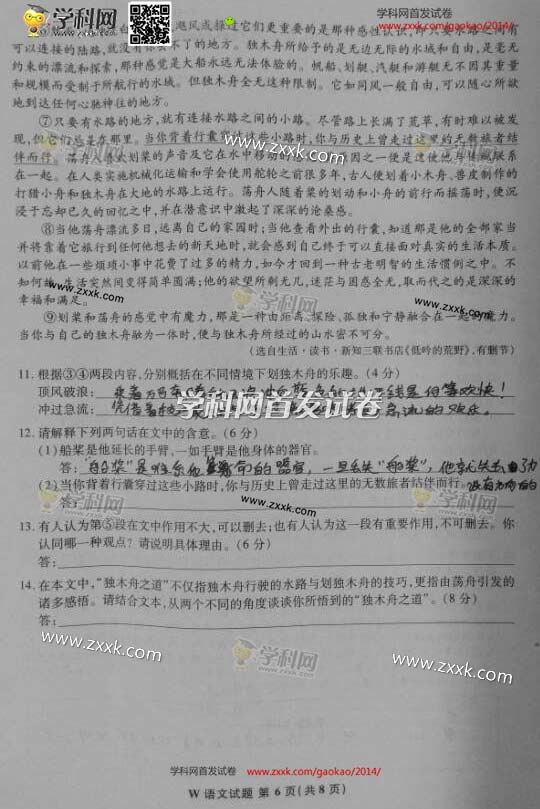 学科网
WWW.ZXXK.COM
学科网首发试卷
www.zxxk.com/gaokao/2014/
可以连接的陆路,就没有你去不了的地方。独木舟所给予的是无边无际的水域和自由,是毫无
约束的漂流和探索,那种感觉是大船永远无法体验的。帆船、划艇、汽艇和游艇无不因其重量
和规模而受制于所航行的水域。但独木舟全无这种限制。它如同风一般自由,可以随心所欲
地到达任何心驰神往的地方。
⑦只要有水路的地方,就有连接水路之间的小路。尽管路上长满了荒草,有时难以被发
现,但它们总是在那里。当你背着行囊穿过这些小路时,你与历史上曾走过这里的无数旅者结
伴而行。荡舟人喜欢划桨的声音及它在水中移动的
因之一便是这使他与传统联系
在一起。在人类实施机械化运输和学会使用舵轮之前很多年,古人便划着小木舟、兽皮制作的
打猎小舟和独木舟在大地的水路上运行。荡舟人随着桨的划动和小舟的前行而摇荡时,便沉
浸于忘却已久的回忆之中,并在潜意识中激起了深深的沧桑感。
⑧当他荡舟漂流多日,远离自己的家园时;当他查看外出的行囊,知道那是他的全部家当
并将靠着它旅行到任何他想去的新天地时,就会感到自己终于可以直接面对真实的生活本质。
以前他在一些烦琐小事中花费了过多的精力,如今才回到一种古老明智的生活惯例之中。不
知何故,生活突然间变得简单圆满;他的欲望所剩无几,迷茫与困惑全无,取而代之的是深深的
幸福和满足。
⑨划桨和荡舟的感觉中有魔力,那是一种由距离、探险、孤独和宁静融合在一起的魔力。
当你与自己的独木舟融为一体时,便与独木舟所经过的山水密不可分。
(选自生活·读书·新知三联书店《低吟的荒野》,有删节)
11. 根据③④两段内容,分别概括在不同情境下划独木舟的乐趣。(4分)
顶风破浪:
冲过急流:
学科网首发试卷
12. 请解释下列两句话在文中的含意。(6分)
(1)船桨是他延长的手臂,一如手臂是他身体的器官。
答:"船桨"是维系他生命的器官,一旦丢失"船桨",他就失去
(2)当你背着行囊穿过这些小路时,你与历史上曾走过这里的无数旅者结伴而行。
答:
www.zxxk.com
13. 有人认为第⑤段在文中作用不大,可以删去;也有人认为这一段有重要作用,不可删去。你
认同哪一种观点?请说明具体理由。(6分)
答:
14. 在本文中,"独木舟之道"不仅指独木舟行驶的水路与划独木舟的技巧,更指由荡舟引发的
诸多感悟。请结合文本,从两个不同的角度谈谈你所悟到的"独木舟之道"。(8分)
答:
www.zxxk.com
学科网
www.zxxk.com
学科网首发试卷
www.zxxk.com/gaokao/2014/
W 语文试题 第 6 页(共 8 页)